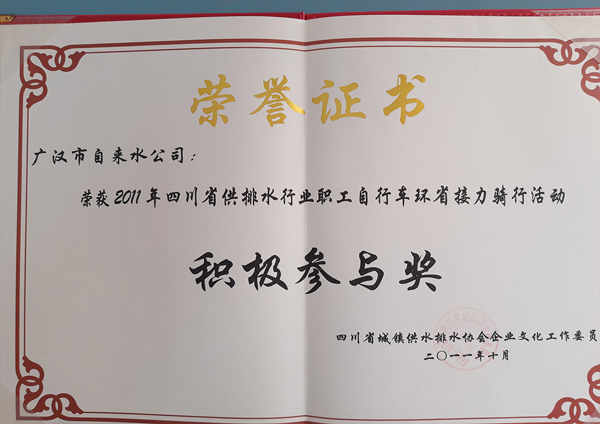 荣誉证书
广汉市自来水公司：
荣获2011年四川省供排水行业职工自行车环省接力骑行活动
积极参与奖
四川省城镇供水排水协会企业文化工作委员
二〇一一年十月